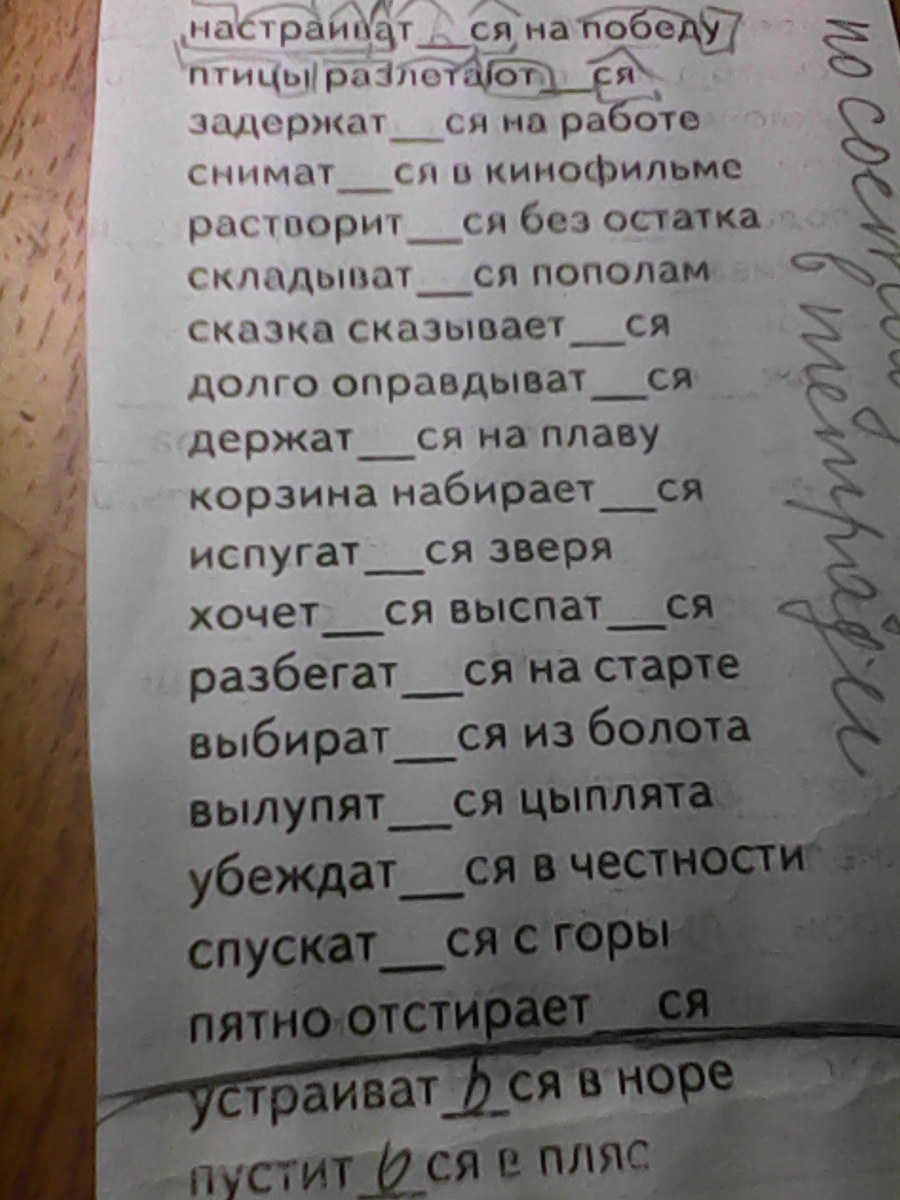 настраиват_ь_ся на победу
птицы разлетают___ся
задержат___ся на работе
снимат___ся в кинофильме
растворит___ся без остатка
складыват___ся пополам
сказка сказывает___ся
долго оправдыват___ся
держат___ся на плаву
корзина набирает___ся
испугат___ся зверя
хочет___ся выспат___ся
разбегат___ся на старте
выбират___ся из болота
вылупят___ся цыплята
убеждат___ся в честности
спускат___ся с горы
пятно отстирает___ся
устраиват_ь_ся в норе
пустит_ь_ся в пляс
по составу
в тетради